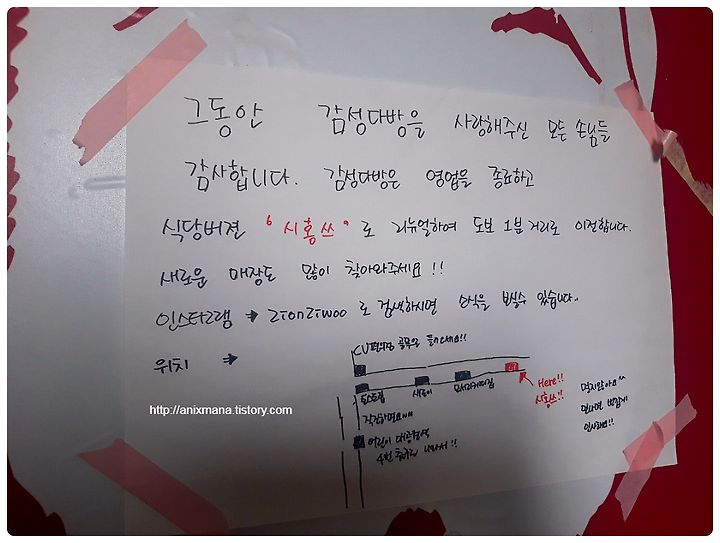 그동안 감성다방을 사랑해주신 모든 손님들
감사합니다. 감성다방은 영업을 종료하고
식당버젼 “시홍쓰”로 리뉴얼하여 도보 1분 거리로 이전합니다.
새로운 매장도 많이 찾아와주세요!!
인스타그램 → ZionZiwoo 로 검색하시면 소식을 보실수 있습니다..
위치 →
CU편의점 골목으로 들어오세요!!
Here!!
시홍쓰!!
멀지않아요^^
직진하면요
어린이대공원역
4번 출구로 나와서!!
http://anixmana.tistory.com